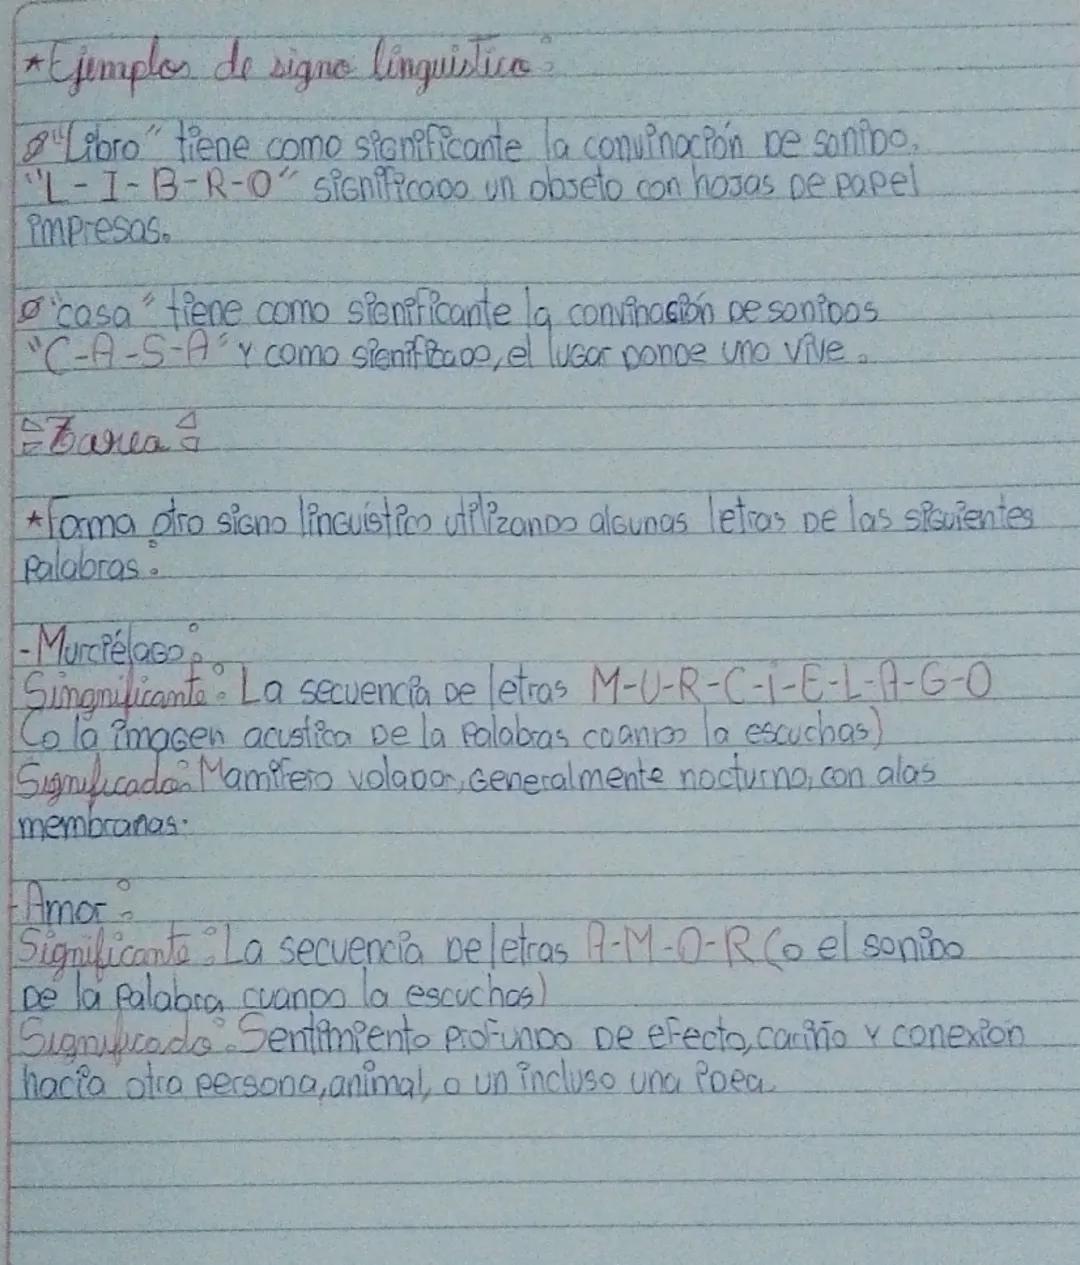 *Ejemplos de signo linguistico:
"Libro" tiene como significante la convinación de sonido,
"L-I-B-R-O" significado un objeto con hojas de papel
impresas.
"casa" tiene como significante la convinación de sonidos
"C-A-S-A" y como significado, el lugar donde uno vive.
Tarea:
*Forma otro signo linguistico utilizando algunas letras de las siguientes
Palabras:
-Murciélago:
Singnificante: La secuencia de letras M-U-R-C-i-E-L-A-G-O
(o la imagen acustica de la Palabras cuando la escuchas)
Significado: Mamifero volador, generalmente nocturno, con alas
membranas.
-Amor:
Significante: La secuencia de letras A-M-O-R (o el sonido
de la palabra cuando la escuchas)
Significado: Sentimiento profundo de efecto, cariño y conexion
hacia otra persona, animal, o un incluso una idea.